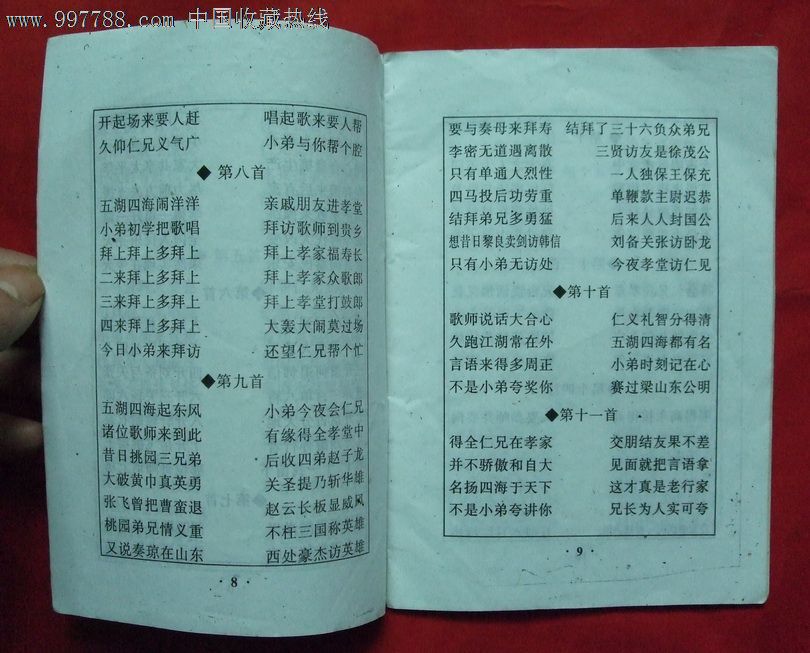 www.997788.com 中国收藏热线
开起场来要人赶　唱起歌来要人帮
久仰仁兄义气广　小弟与你帮个腔
◆第八首
五湖四海闹洋洋　亲戚朋友进孝堂
小弟初学把歌唱　拜访歌师到贵乡
拜上拜上多拜上　拜上孝家福寿长
二来拜上多拜上　拜上孝家众歌郎
三来拜上多拜上　拜上孝堂打鼓郎
四来拜上多拜上　大轰大闹莫过场
今日小弟来拜访　还望仁兄帮个忙
◆第九首
五湖四海起东风　小弟今夜会仁兄
诸位歌师来到此　有缘得全孝堂中
昔日挑园三兄弟　后收四弟赵子龙
大破黄巾真英勇　关圣提乃斩华雄
张飞曾把曹蛮退　赵云长板显威风
桃园弟兄情义重　不枉三国称英雄
又说奏琼在山东　西处豪杰访英雄
·8·
要与奏母来拜寿　结拜了三十六负众弟兄
李密无道遇离散　三贤访友是徐茂公
只有单通人烈性　一人独保王保充
四马投后功劳重　单鞭款主尉迟恭
结拜弟兄多勇猛　后来人人封国公
想昔日黎良卖剑访韩信　刘备关张访卧龙
只有小弟无访处　今夜孝堂访仁见
◆第十首
歌师说话大合心　仁义礼智分得清
久跑江湖常在外　五湖四海都有名
言语来得多周正　小弟时刻记在心
不是小弟夸奖你　赛过梁山东公明
◆第十一首
得全仁兄在孝家　交朋结友果不差
并不骄傲和自大　见面就把言语拿
名扬四海于天下　这才真是老行家
不是小弟夸讲你　兄长为人实可夸
·9·